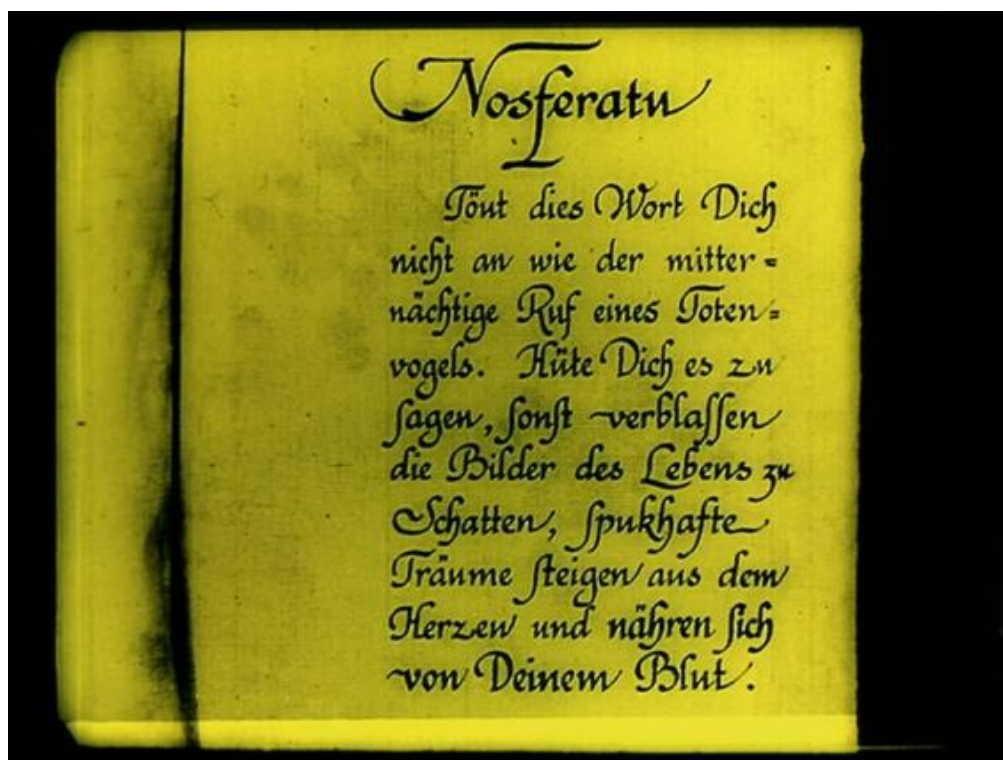 Nosferatu
Tönt dies Wort Dich
nicht an wie der mitter=
nächtige Ruf eines Toten=
vogels. Hüte Dich es zu
ſagen, ſonſt verblaſſen
die Bilder des Lebens zu
Schatten, ſpukhafte
Träume ſteigen aus dem
Herzen und nähren ſich
von Deinem Blut.